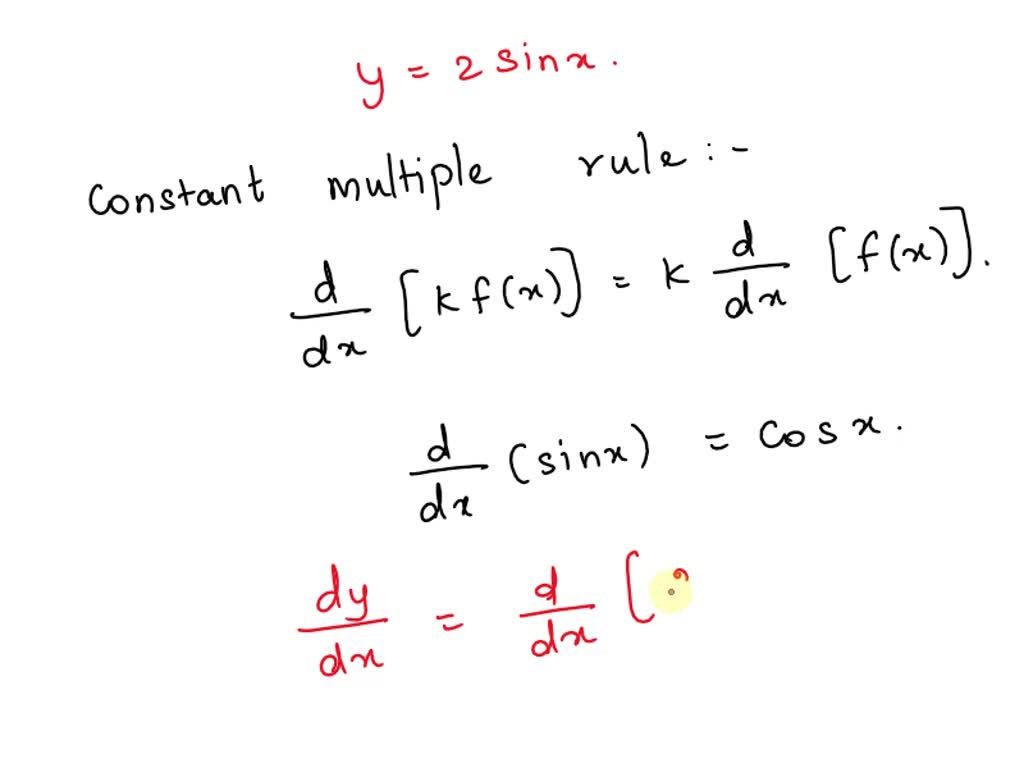 y = 2 sinx.
Constant multiple rule :-
d/dx [k f(x)] = k d/dx [f(x)].
d/dx (sinx) = cosx.
dy/dx = d/dx [